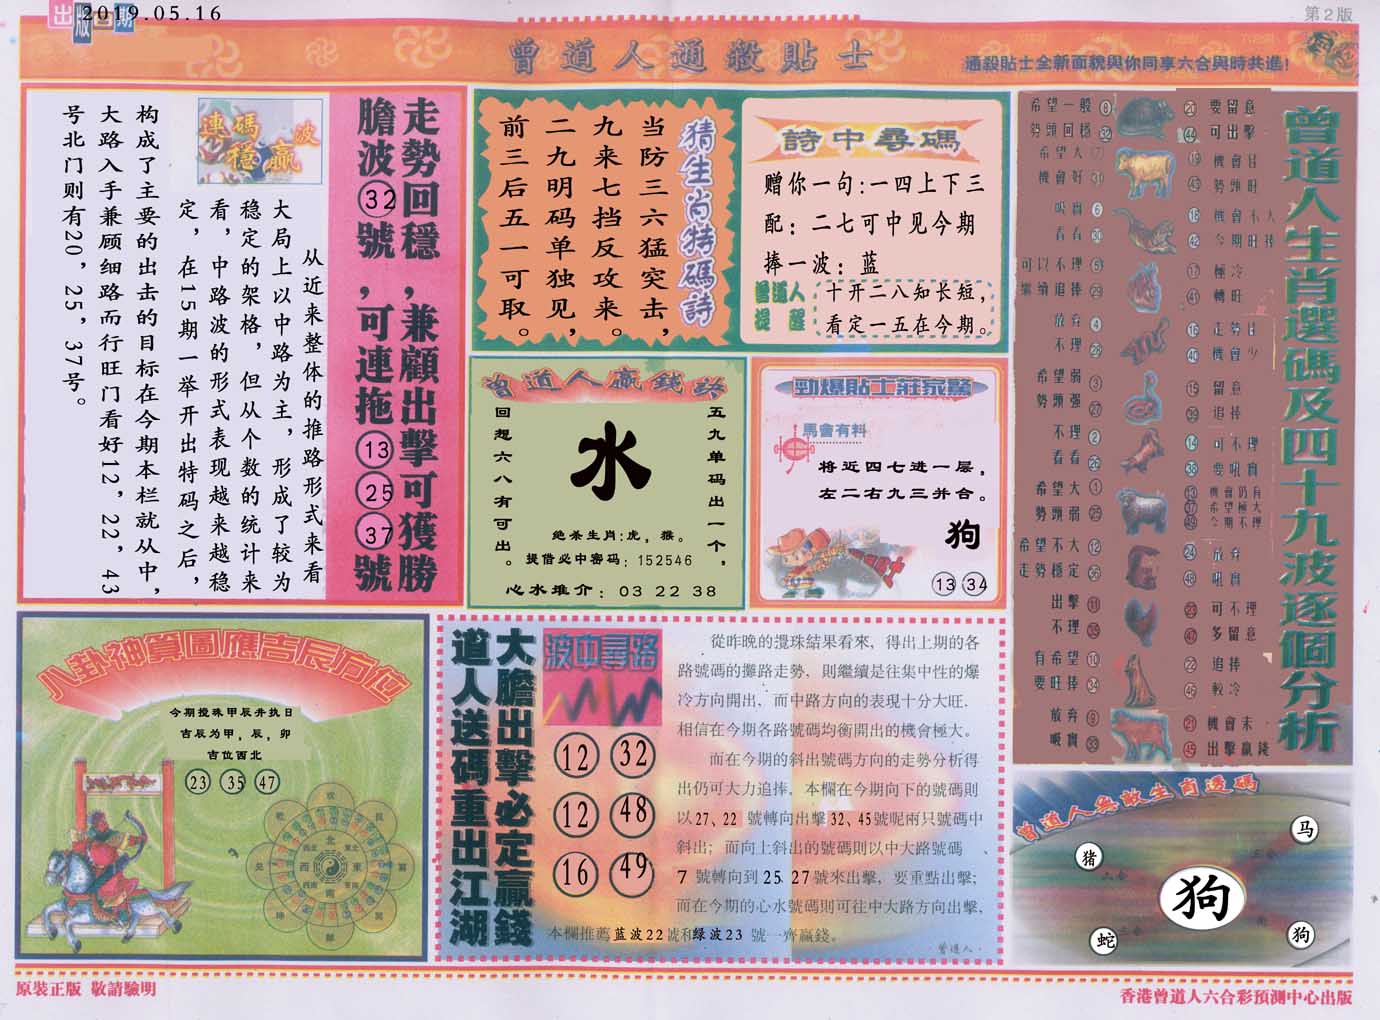 出版日期
2019.05.16
第2版
曾道人通殺貼士
通殺貼士全新面貌與你同享六合與時共進!
走勢回穩,兼顧出擊可獲勝
膽波32號,可連拖132537號
連碼穩赢波
从近来整体的推路形式来看
大局上以中路为主,形成了较为
稳定的架格,但从个数的统计来
看,中路波的形式表现越来越稳
定,在15期一举开出特码之后,
构成了主要的出击的目标在今期本栏就从中,
大路入手兼顾细路而行旺门看好12,22,43
号北门则有20,25,37号。
猜生肖特碼詩
当防三六猛突击,
九来七挡反攻来。
二九明码单独见,
前三后五一可取。
詩中尋碼
赠你一句:一四上下三
配:二七可中见今期
捧一波:蓝
曾道人提醒
十开二八知长短,
看定一五在今期。
曾道人贏錢詩
五九单码出一个,
回想六八有可出。
水
绝杀生肖:虎,猴。
提借必中密码:152546
心水推介:03 22 38
勁爆貼士莊家驚
馬會有料
将近四七进一层,
左二右九三并合。
狗
13 34
曾道人生肖選碼及四十九波逐個分析
希望一般 8
勢頭回穩 32
希望大 7
機會好 31
吸實 6
看看 30
可以不理 5
繼續追捧 29
放弃 4
不理 28
希望弱 3
勢頭强 27
不理 2
看看 26
希望大 1
勢頭弱 25
希望不大 12
走勢穩定 36
出擊 11
不理 35
有希望 10
要旺捧 34
放弃 9
吸實 33
20 要留意
44 可出擊
19 機會佳
43 勢頭旺
18 機會不大
42 今期旺捧
17 極冷
41 轉旺
16 走勢佳
40 機會少
15 留意
39 追捧
14 可不理
38 要吼實
13 機會仍有
37 希望極大
49 今期不理
24 放弃
48 吼實
23 可不理
47 多留意
22 追捧
46 較冷
21 機會未
45 出擊贏錢
八卦神算圖應吉辰方位
今期搅珠甲辰并执日
吉辰为甲,辰,卯
吉位西北
23 35 47
北
東
南
西
大膽出擊必定贏錢
道人送碼重出江湖
波中尋路
12 32
12 48
16 49
從昨晚的攪珠結果看來,得出上期的各
路號碼的攤路走勢,則繼續是往集中性的爆
冷方向開出,而中路方向的表現十分大旺.
相信在今期各路號碼均衡開出的機會極大。
而在今期的斜出號碼方向的走勢分析得
出仍可大力追捧,本欄在今期向下的號碼則
以27、22 號轉向出擊32、45號呢兩只號碼中
斜出;而向上斜出的號碼則以中大路號碼、
7 號轉向到25 27號來出擊,要重點出擊;
而在今期的心水號碼則可往中大路方向出擊,
本欄推薦蓝波22號和绿波23 號一齊贏錢。
曾道人·
曾道人無敵生肖透碼
马
猪
狗
蛇
狗
原裝正版 敬請驗明
香港曾道人六合彩預測中心出版